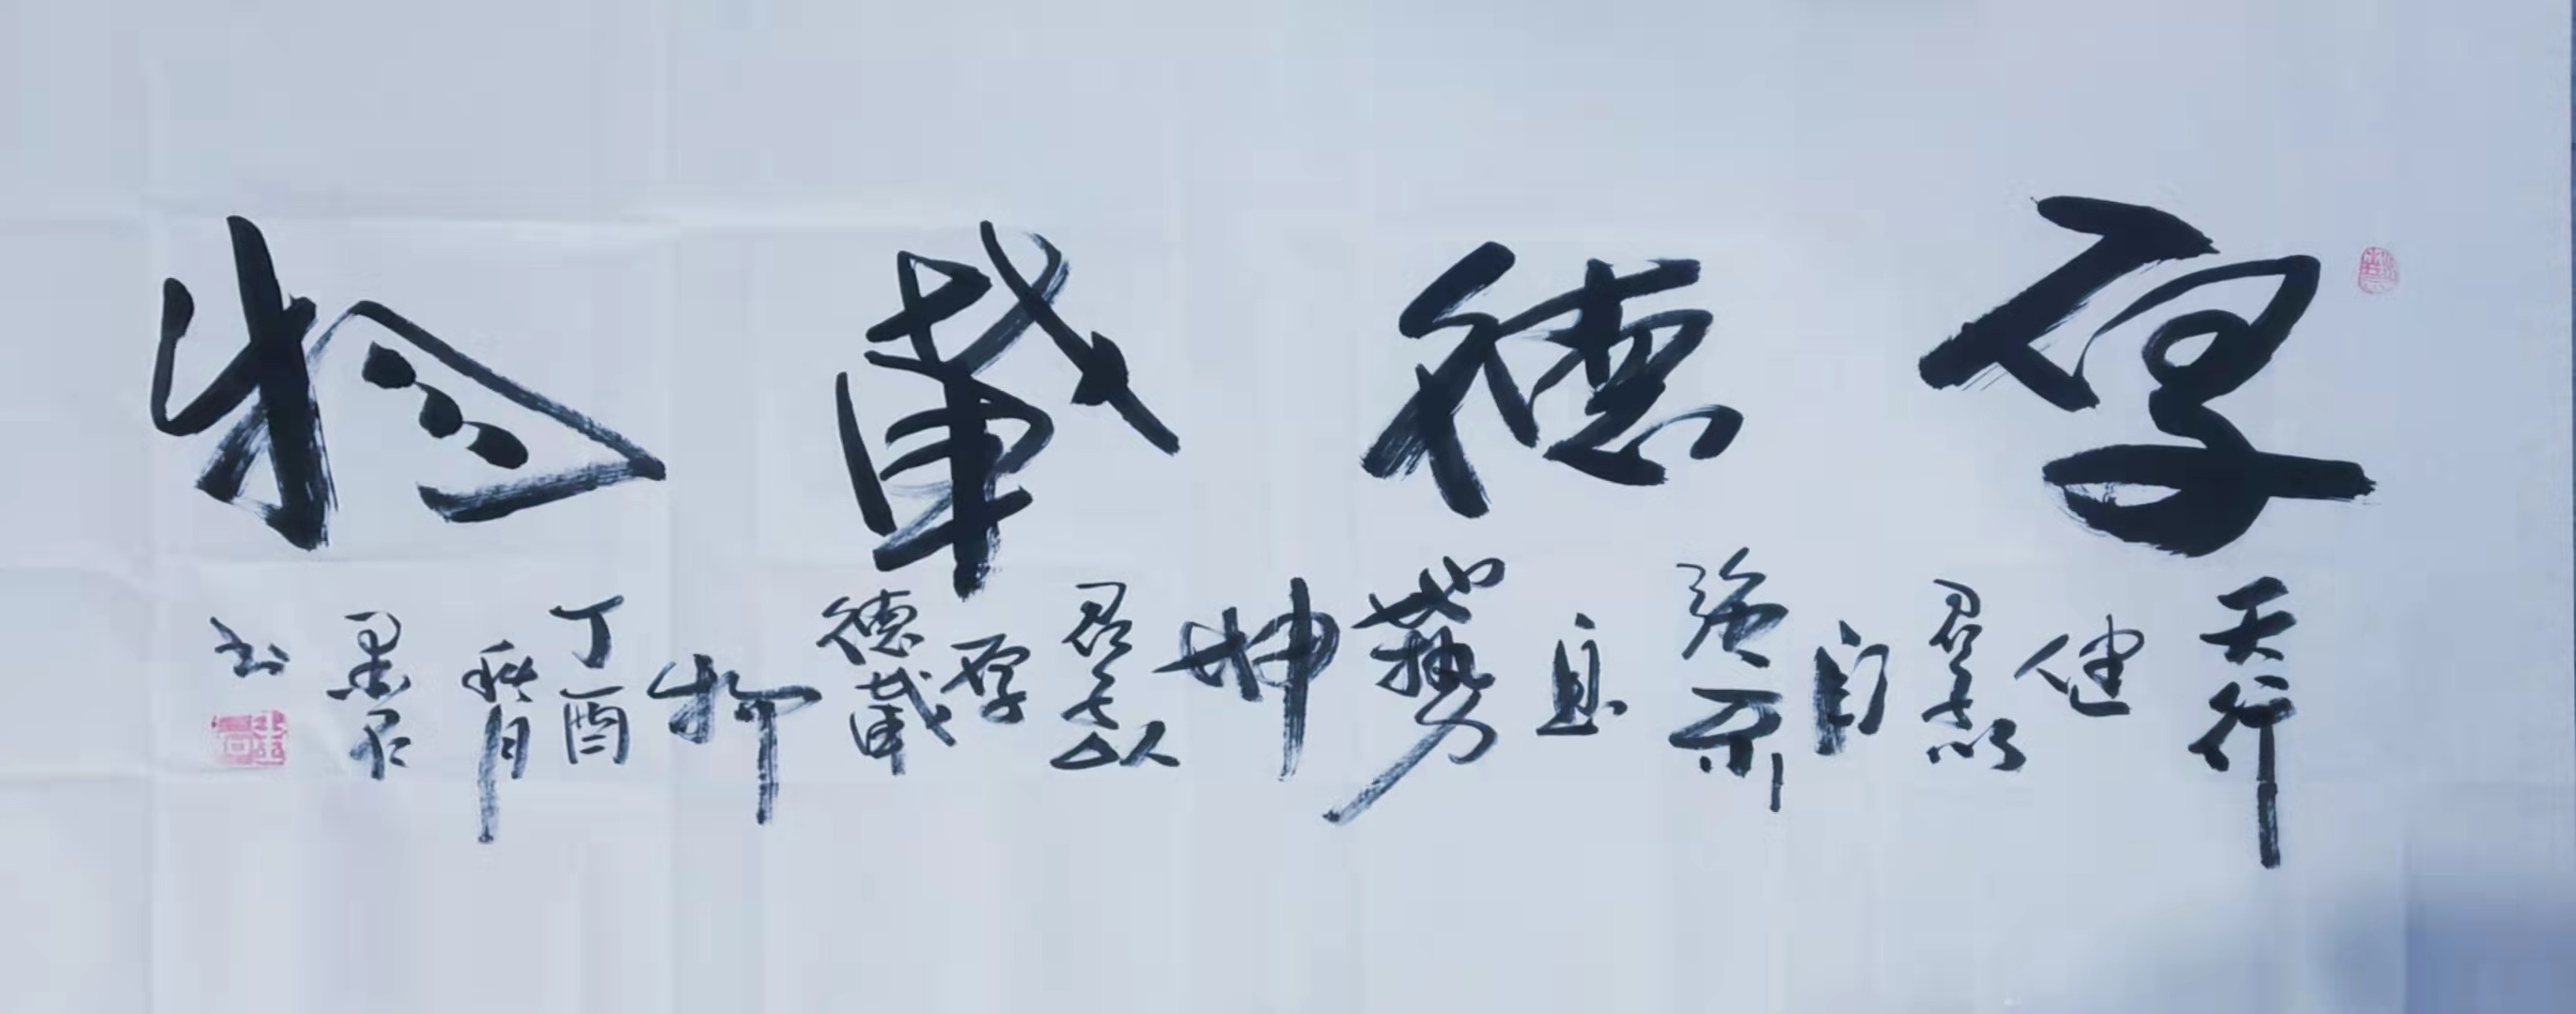 厚德載物
天行
健
君子以
自
強不
息
地勢
坤
君子以
厚
德載
物
丁酉
秋月
墨君
书